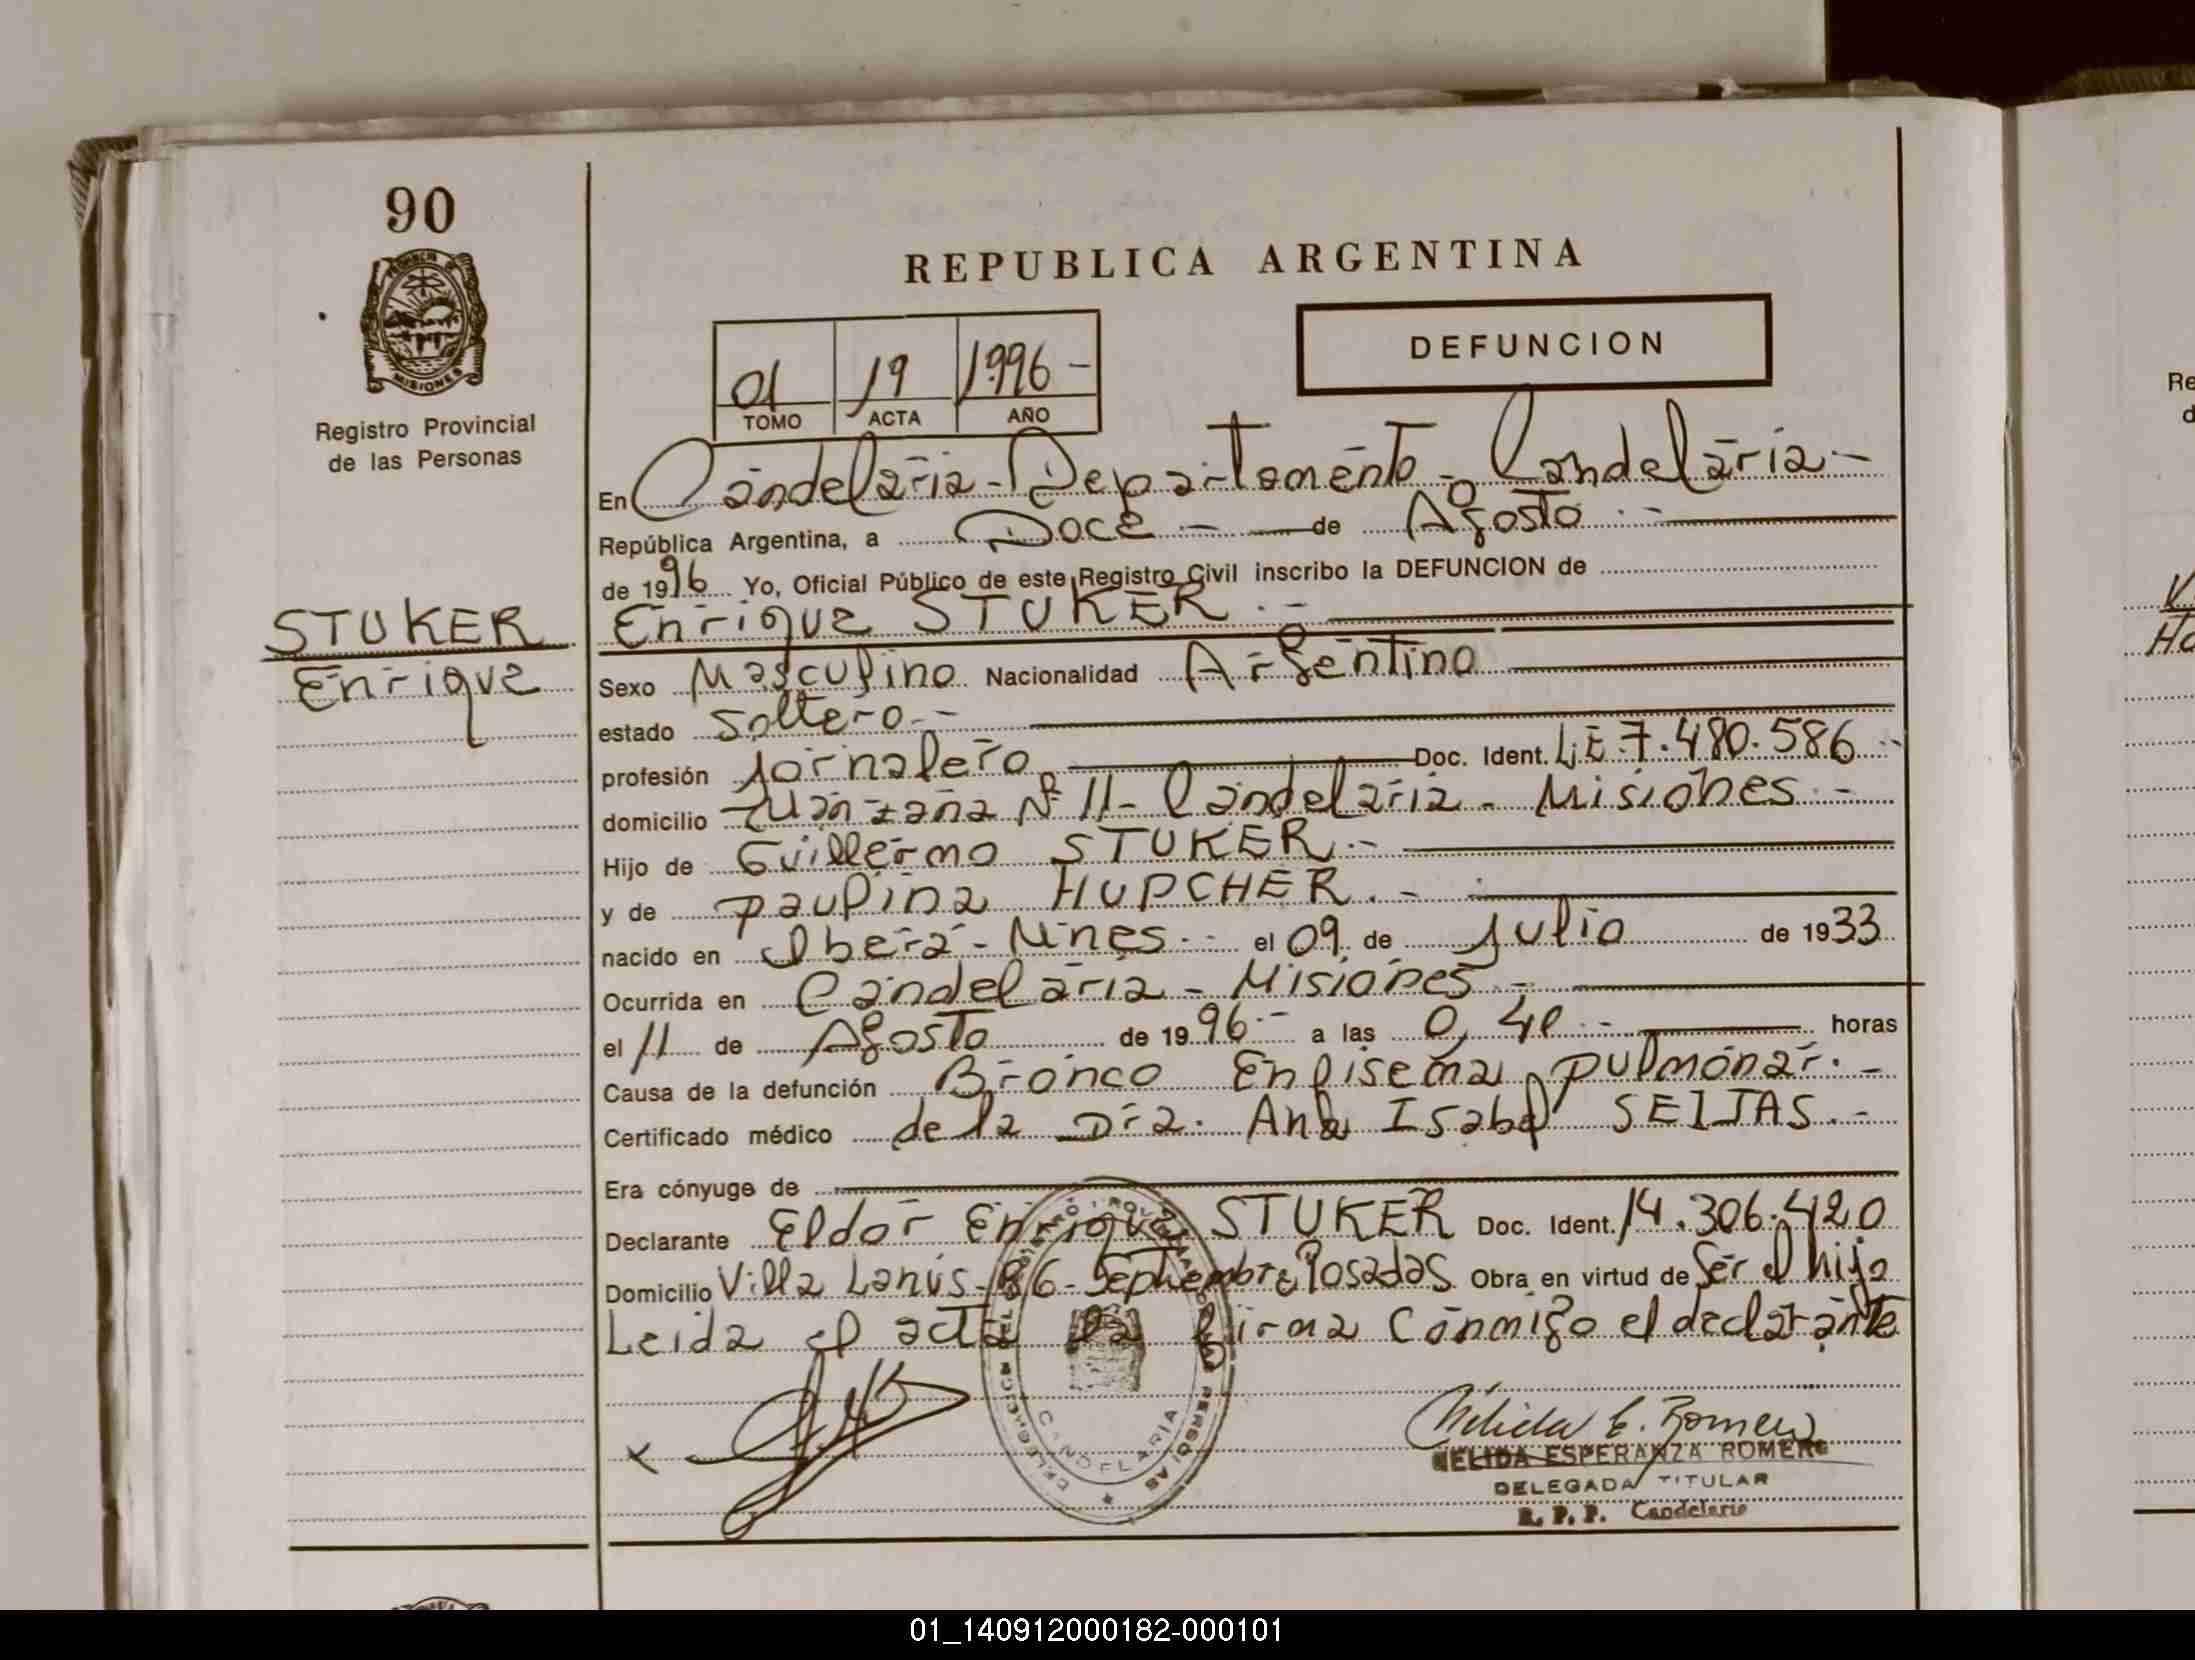 90
PROVINCIA DE
MISIONES
Registro Provincial
de las Personas
STUKER
Enrique
REPUBLICA ARGENTINA
01 19 1996 -
TOMO ACTA AÑO
DEFUNCION
En Candelaria - Departamento - Candelaria -
República Argentina, a Doce - de Agosto . -
de 1996 Yo, Oficial Público de este Registro Civil inscribo la DEFUNCION de
Enrique STUKER . -
Sexo Masculino Nacionalidad Argentino
estado Soltero . -
profesión Jornalero Doc. Ident. L.E 7.480.586 . -
domicilio Manzana Nº 11 - Candelaria - Misiones . -
Hijo de Guillermo STUKER . -
y de Paulina HUPCHER . -
nacido en Iberá - Mnes . - el 09 de Julio de 1933
Ocurrida en Candelaria - Misiones . -
el 11 de Agosto de 1996 . - a las 0,40 . - horas
Causa de la defunción Bronco Enfisema pulmonar . -
Certificado médico de la Dra. Ana Isabel SEIJAS . -
Era cónyuge de
Declarante Eldor Enrique STUKER Doc. Ident. 14.306.420
Domicilio Villa Lanús - 86 - Septiembre Posadas Obra en virtud de Ser el hijo
Leida el acta la firma Conmigo el declarante
CANDELARIA
Nelida E. Romero
NELIDA ESPERANZA ROMERO
DELEGADA TITULAR
R. P. P. Candelaria
01_140912000182-000101